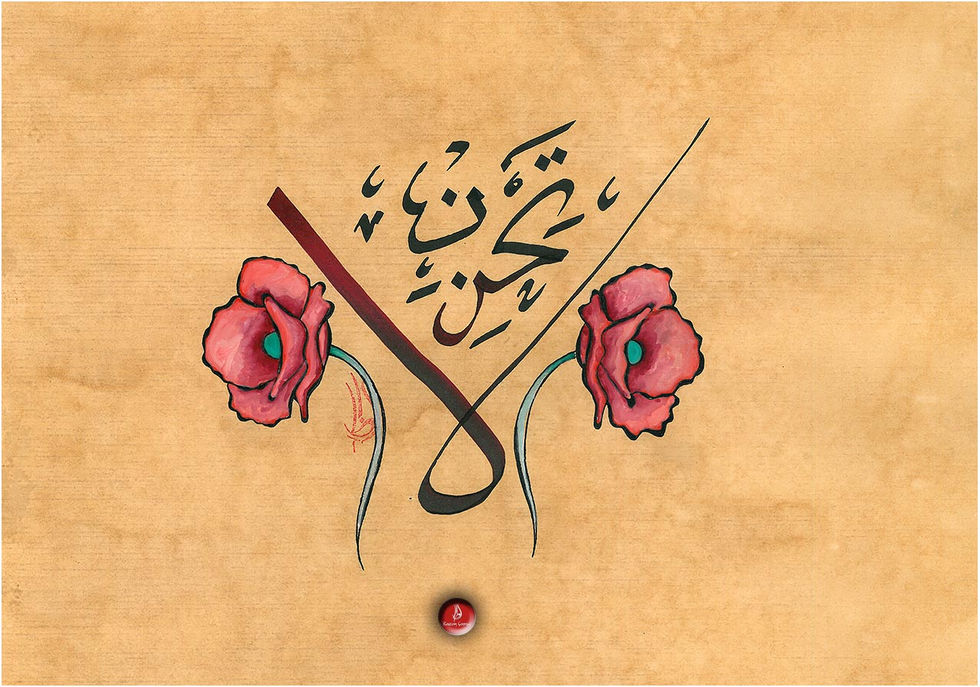 لا تحزن